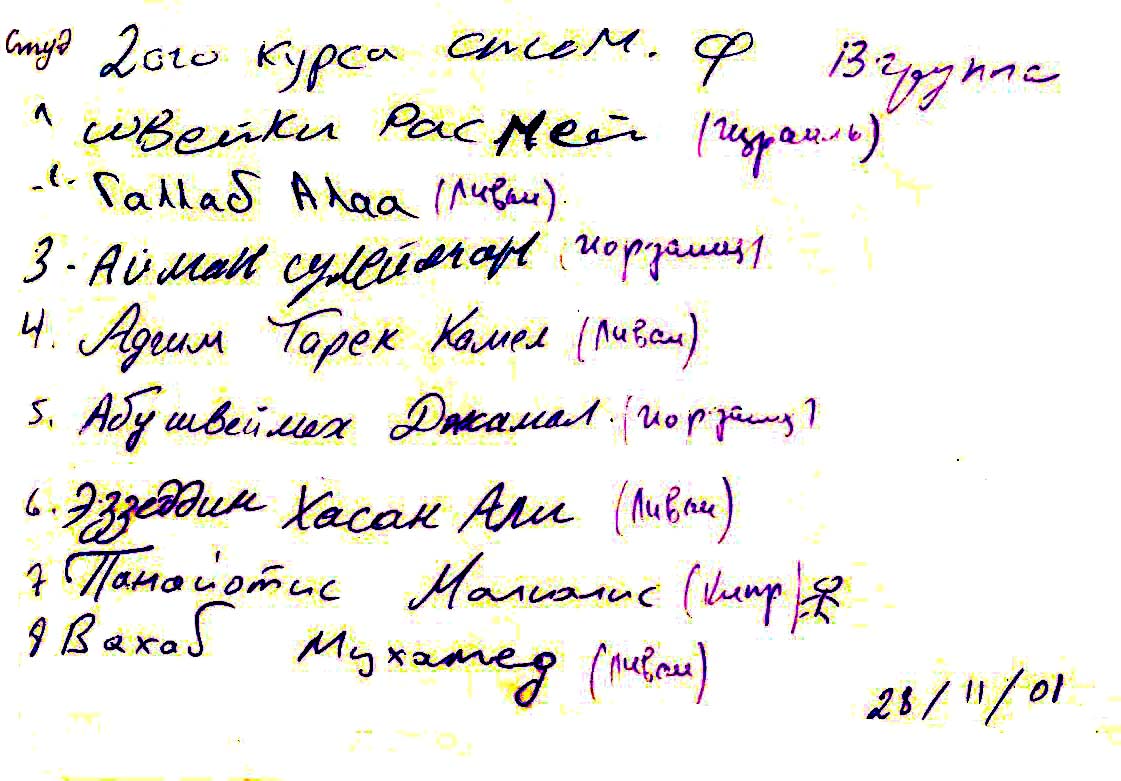 Студ 2ого курса стом. ф 13 группа
1 Швейки Расмей (Израиль)
2. Галлаб Алаа (Ливан)
3. Айман Сулейман (Иордания)
4. Адгим Тарек Камел (Ливан)
5. Абу швеймех Джамал. (Иордания)
6. Эззеддин Хасан Али (Ливан)
7 Панайотис (Кипр)
8 Вахаб Мухамед (Ливан)
28/11/01